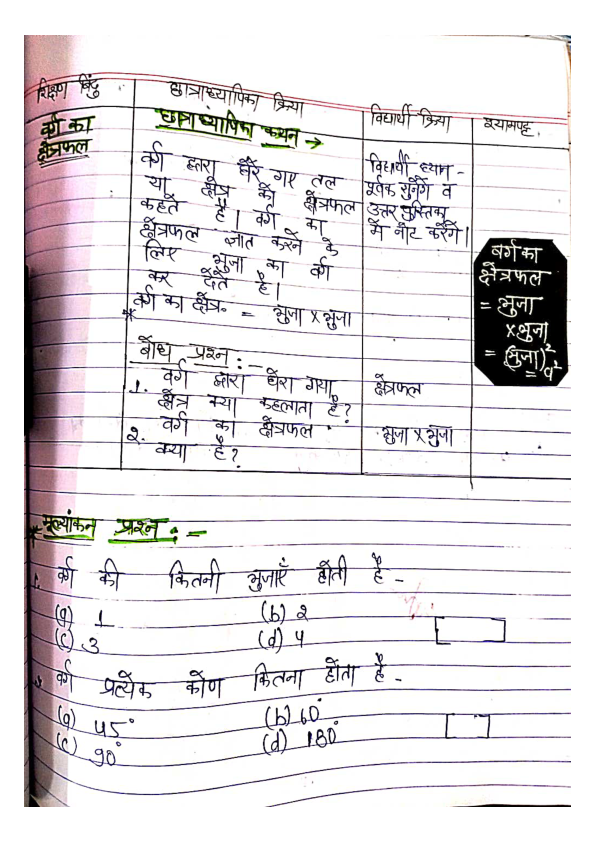 शिक्षण बिंदु
छात्राध्यापिका क्रिया
विद्यार्थी क्रिया
श्यामपट्ट
वर्ग का
क्षेत्रफल
छात्राध्यापिका कथन →
वर्ग द्वारा घेरे गए तल
या क्षेत्र को क्षेत्रफल
कहते है। वर्ग का
क्षेत्रफल ज्ञात करने के
लिए भुजा का वर्ग
कर देते है।
* वर्ग का क्षेत्र. = भुजा x भुजा
विद्यार्थी ध्यान -
पूर्वक सुनेंगे व
उत्तर पुस्तिका
में नोट करेंगे।
वर्ग का
क्षेत्रफल
= भुजा
x भुजा
= (भुजा)²
= a²
बोध प्रश्न :-
1. वर्ग द्वारा घेरा गया
क्षेत्र क्या कहलाता है?
क्षेत्रफल
2. वर्ग का क्षेत्रफल
क्या है?
भुजा x भुजा
* मूल्यांकन प्रश्न :-
1. वर्ग की कितनी भुजाएँ होती है -
(a) 1 (b) 2
(c) 3 (d) 4
वर्ग प्रत्येक कोण कितना होता है -
(a) 45° (b) 60°
(c) 90° (d) 180°